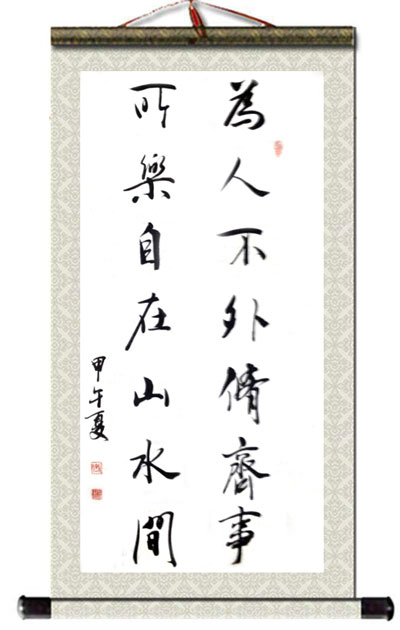 為人不外脩齊事
所樂自在山水間
甲午夏